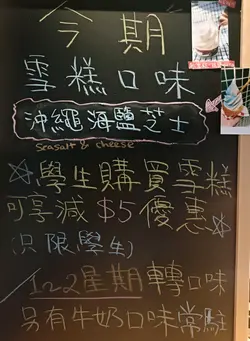 今期
雪糕口味
沖繩海鹽芝士
Seasalt & cheese
☆學生購買雪糕
可享減$5優惠☆
(只限學生)
1-2星期轉口味
另有牛奶口味常駐